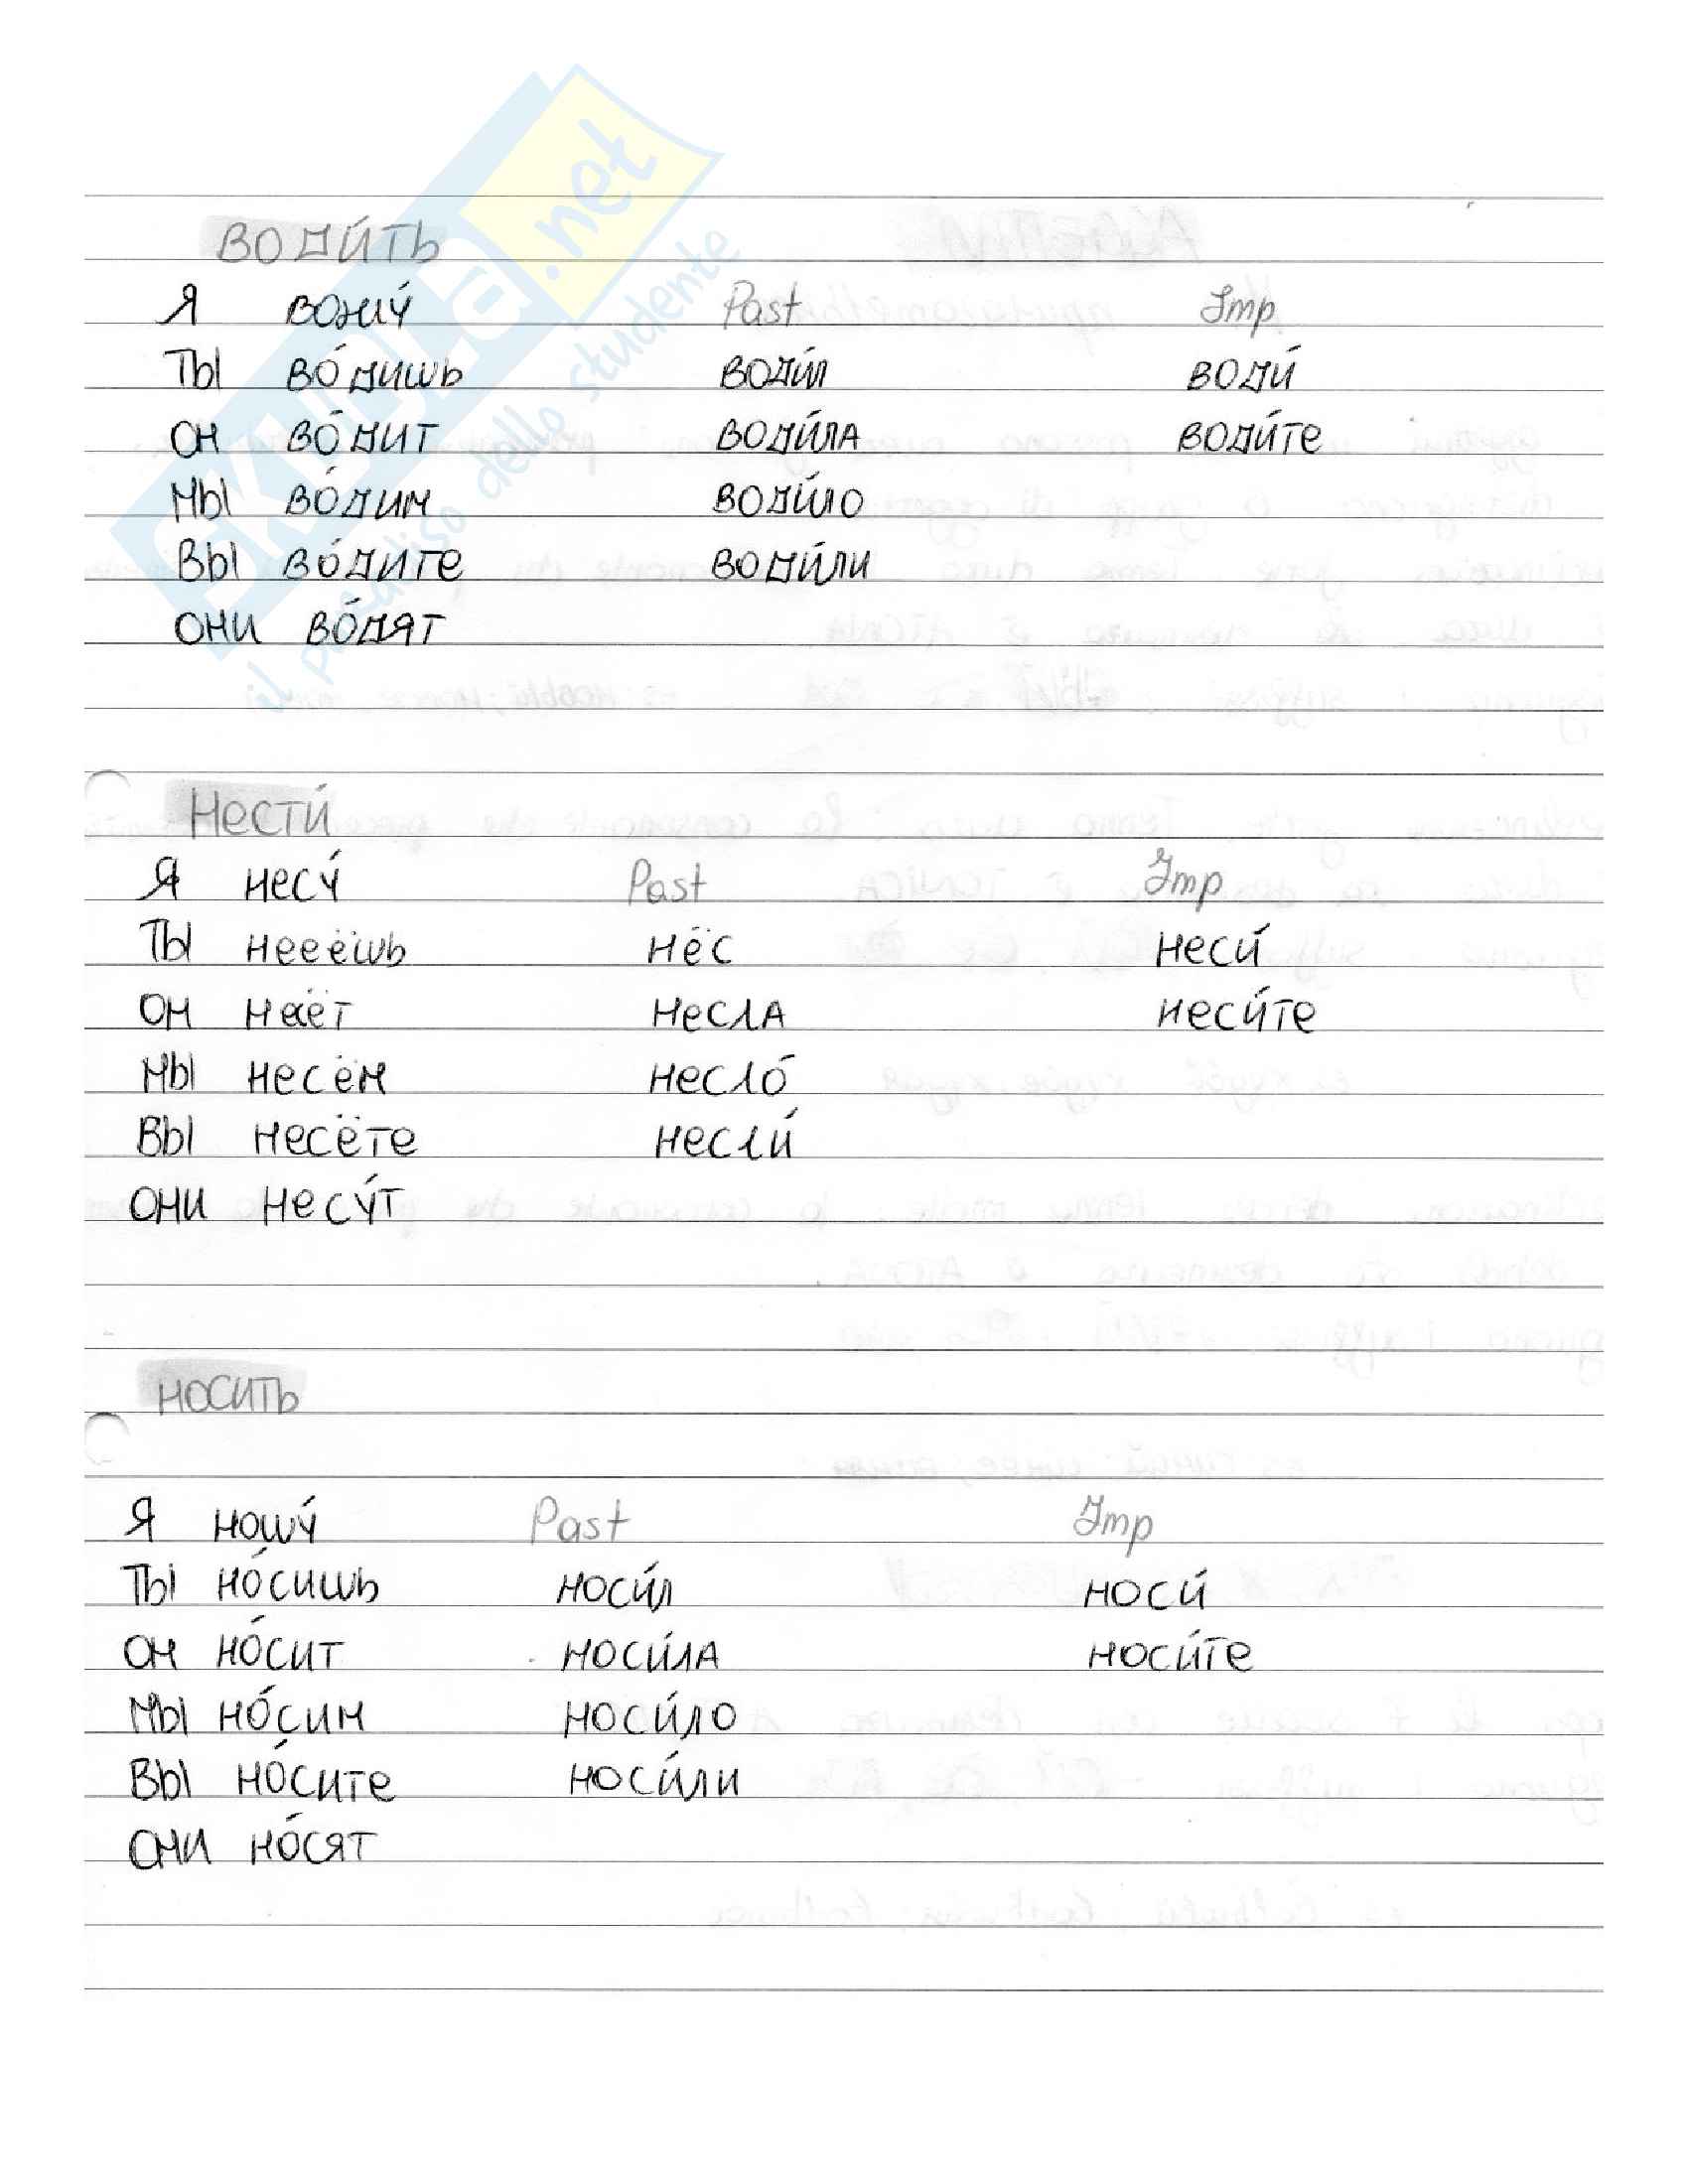 SKUOLA.net
il paradiso dello studente
ВОДИ́ТЬ
Я вожу́ Past Imp
ТЫ во́дишь води́л води́
ОН во́дит води́ла води́те
МЫ во́дим води́ло
ВЫ во́дите води́ли
ОНИ во́дят
НЕСТИ́
Я несу́ Past Imp
ТЫ нееёшь нёс неси́
ОН несёт несла неси́те
МЫ несём несло́
ВЫ несёте несли́
ОНИ несу́т
НОСИТЬ
Я ношу́ Past Imp
ТЫ но́сишь носи́л носи́
ОН но́сит носи́ла носи́те
МЫ но́сим носи́ло
ВЫ но́сите носи́ли
ОНИ но́сят